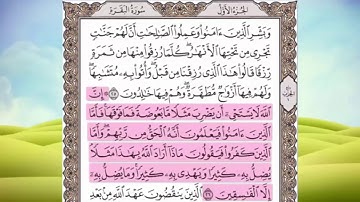 سُورَةُ الْبَقَرَةِ
الجُزْءُ الأَوَّلُ
وَبَشِّرِ الَّذِينَ ءَامَنُوا وَعَمِلُوا الصَّٰلِحَٰتِ أَنَّ لَهُمْ جَنَّٰتٍ
تَجْرِي مِن تَحْتِهَا الْأَنْهَٰرُ كُلَّمَا رُزِقُوا مِنْهَا مِن ثَمَرَةٍ
رِّزْقًا قَالُوا هَٰذَا الَّذِي رُزِقْنَا مِن قَبْلُ وَأُتُوا بِهِ مُتَشَٰبِهًا
وَلَهُمْ فِيهَا أَزْوَٰجٌ مُّطَهَّرَةٌ وَهُمْ فِيهَا خَٰلِدُونَ ٢٥ إِنَّ
اللَّهَ لَا يَسْتَحْيِ أَن يَضْرِبَ مَثَلًا مَّا بَعُوضَةً فَمَا فَوْقَهَا فَأَمَّا
الَّذِينَ ءَامَنُوا فَيَعْلَمُونَ أَنَّهُ الْحَقُّ مِن رَّبِّهِمْ وَأَمَّا
الَّذِينَ كَفَرُوا فَيَقُولُونَ مَاذَا أَرَادَ اللَّهُ بِهَٰذَا مَثَلًا
يُضِلُّ بِهِ كَثِيرًا وَيَهْدِي بِهِ كَثِيرًا وَمَا يُضِلُّ بِهِ
إِلَّا الْفَٰسِقِينَ ٢٦ الَّذِينَ يَنقُضُونَ عَهْدَ اللَّهِ مِن بَعْدِ